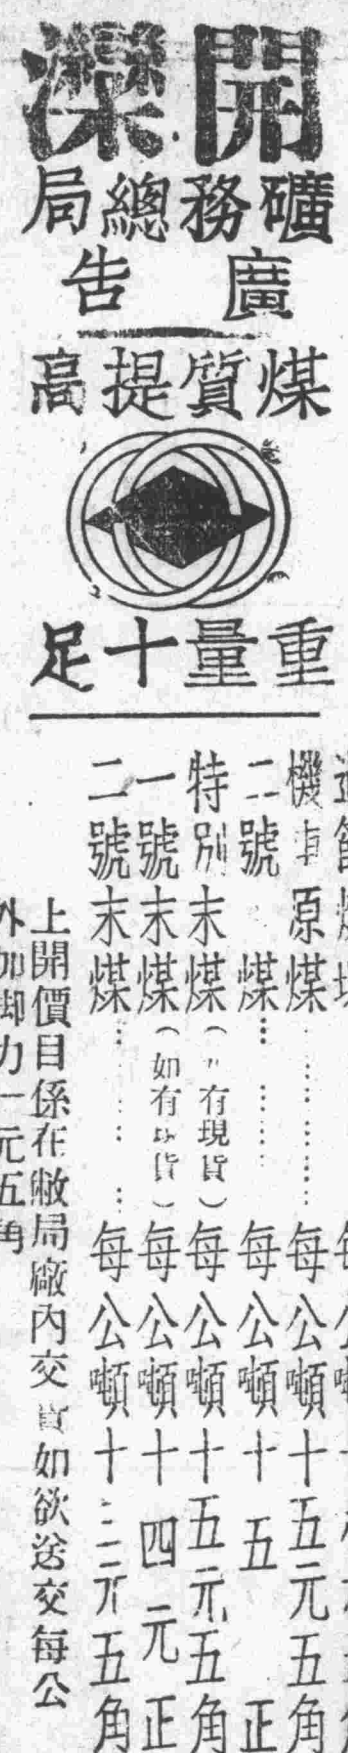 開灤
礦務總局
廣告
煤質提高
重量十足
機車原煤……每公噸十五元五角
二號煤……每公噸十五正
特別末煤(有現貨)每公噸十五元五角
一號末煤(如有貨)每公噸十四元正
二號末煤……每公噸十三元五角
上開價目係在敝局廠內交貨如欲送交每公
外加脚力一元五角